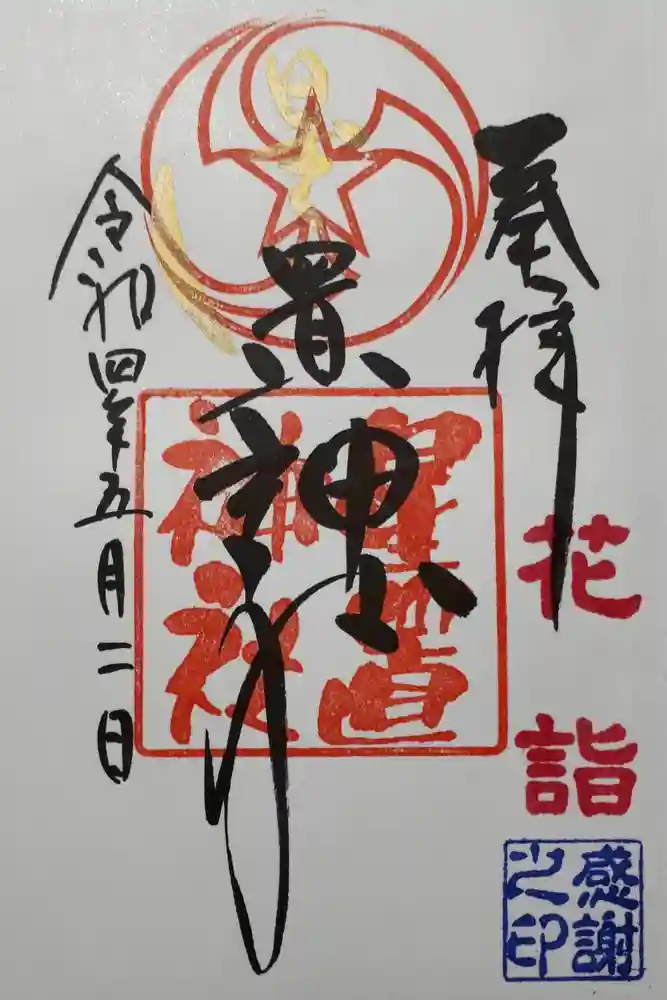 奉拝
花詣
感謝
之印
置神社
星置
神社
令和四年五月二日